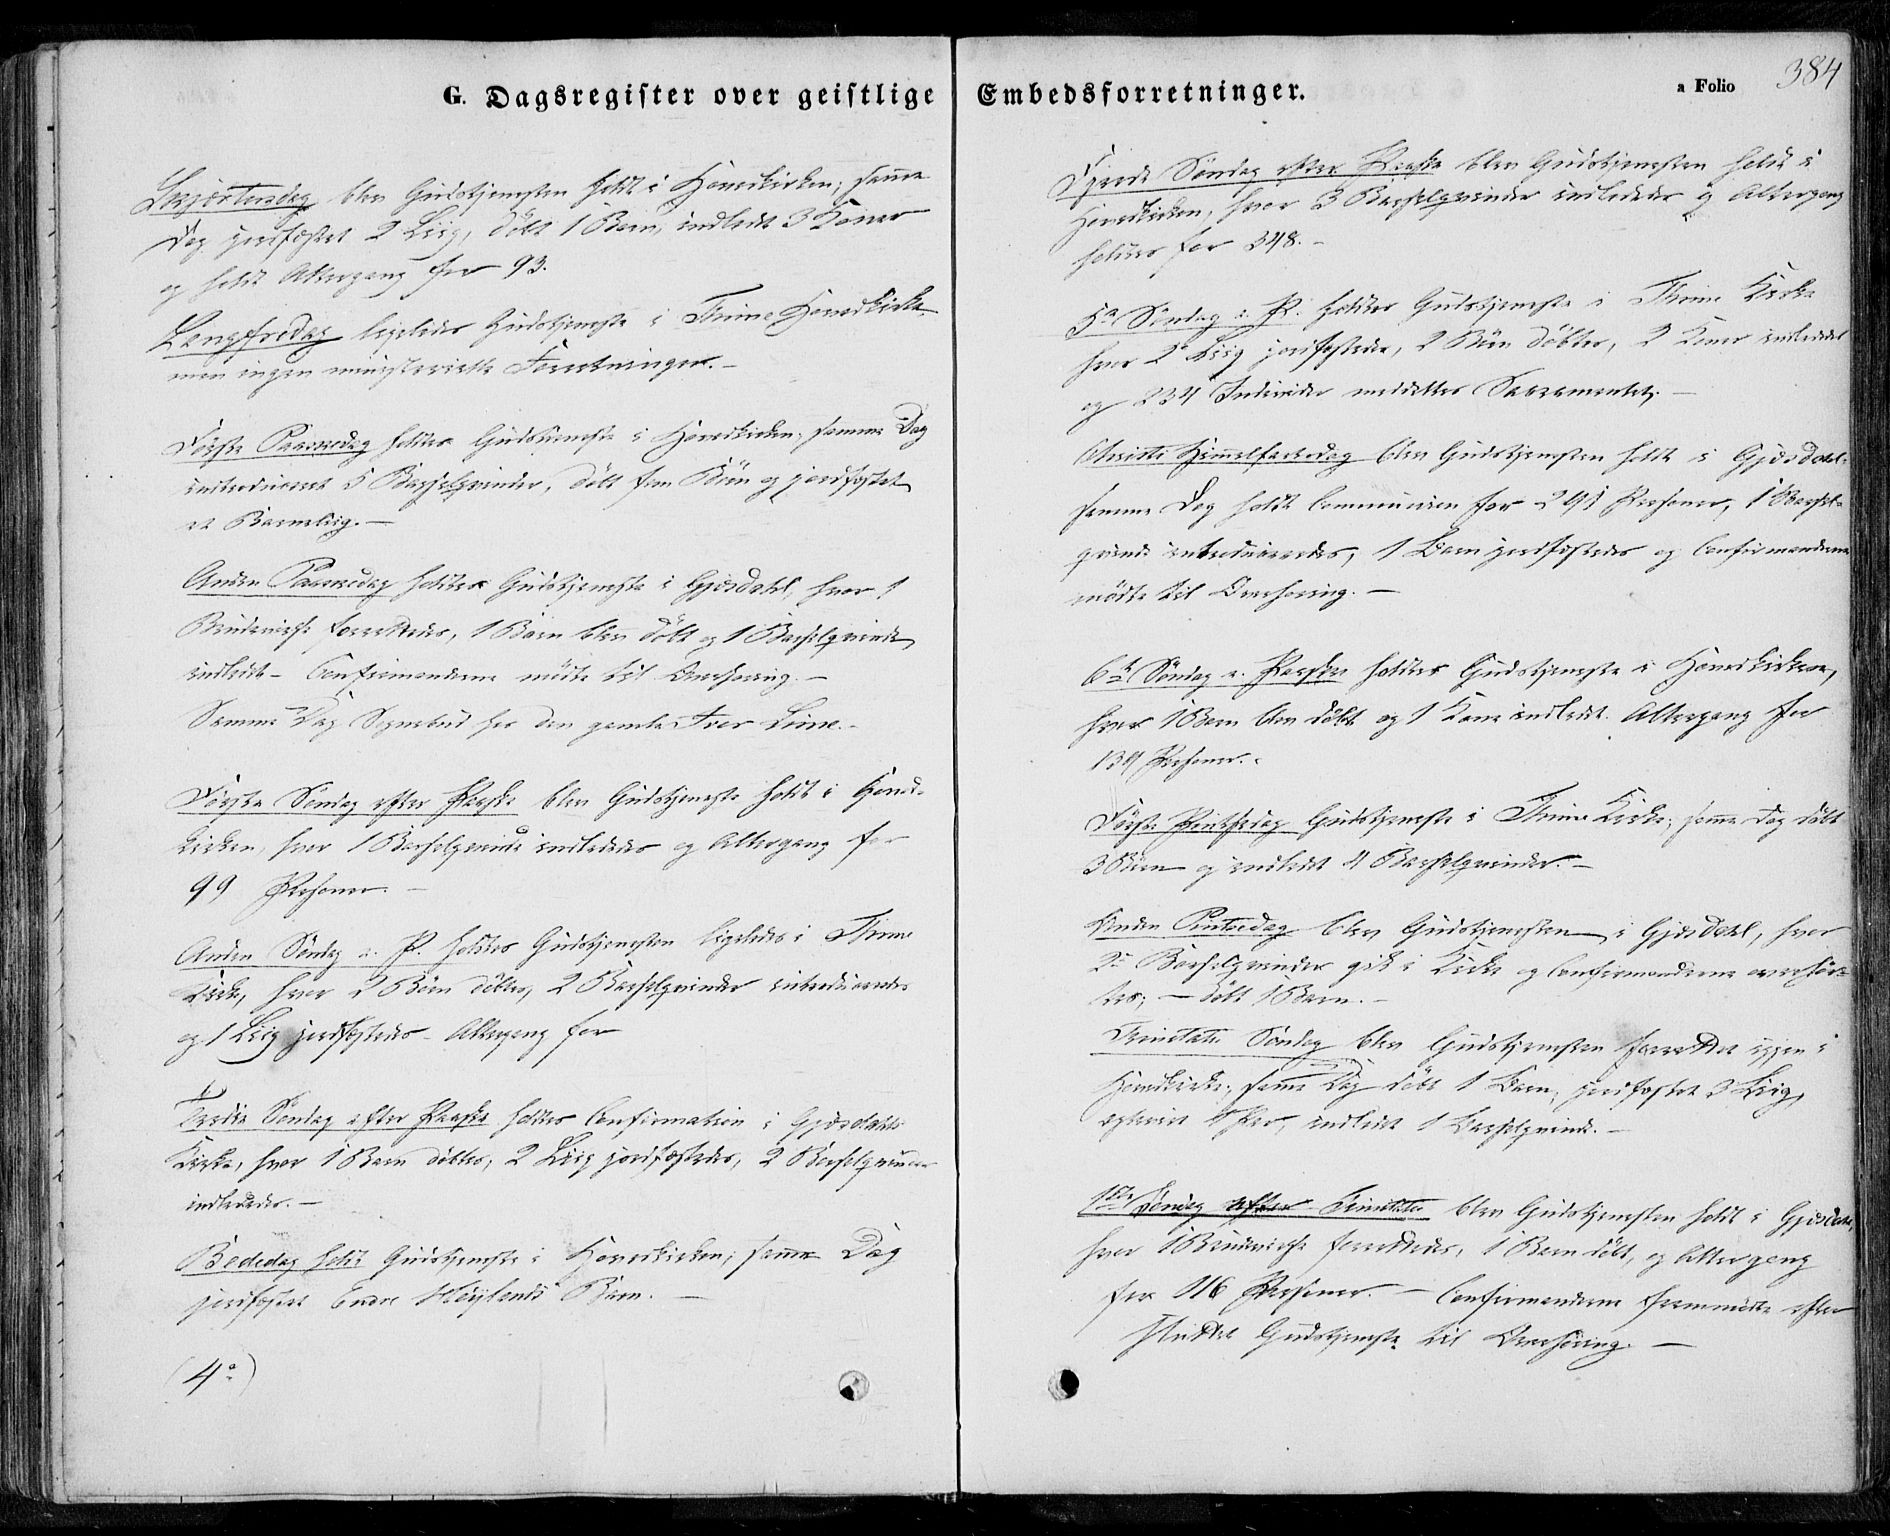 G. Dagsregister over geistlige Embedsforretninger.
a Folio 384
Skjærtorsdag blev Gudstjenesten holdt i Hovedkirken; samme
Dag jordfæstet 2 Liig, döbt 1 Barn, indledt 3 Koner
og holdt Altergang for 93.
Langfredag ligeledes Gudstjeneste i Thime Hovedkirke
men ingen ministerielle Forretninger.-
Förste Paaskedag holdtes Gudstjeneste i Hovedkirken; samme Dag
introduceret 5 Barselqvinder, döbt fem Börn og jordfæstet
et Barneliig.-
Anden Paaskedag holdtes Gudstjeneste i Gjesdahl, hvor 1
Brudevielse forrettedes, 1 Barn blev döbt og 1 Barselqvinde
indledt - Confirmanderne mödte til Overhöring.-
Samme Dag Sognebud hos den gamle Iver Lime.-
Förste Söndag efter Paaske blev Gudstjeneste holdt i Hoved-
kirken, hvor 1 Barselqvinde indlededes og Altergang for
99 Personer.-
Anden Söndag e. P. holdtes Gudstjenesten ligeledes i Thime
Kirke, hvor 2 Börn döbtes, 2 Barselqvinder introduceredes
og 1 Liig jordfæstedes - Altergang for
Tredie Söndag efter Paaske holdtes Confirmation i Gjesdahls
Kirke, hvor 1 Barn döbtes, 2 Liig jordfæstedes, 2 Barselqvinder
indlededes.-
Bededag holdt Gudstjeneste i Hovedkirken; samme Dag
jordfæstet Endre Höylands Barn.-
(4a)
Fjerde Söndag efter Paaske blev Gudstjenesten holdt i
Hovedkirken, hvor 3 Barselqvinder indlededes og Altergang
holdtes for 348.-
5te Söndag e. P. holdtes Gudstjeneste i Thime Kirke
hvor 2 Liig jordfæstedes, 2 Börn döbtes, 2 Koner indledet
og 234 Individer meddeltes Sacramentet.-
Christi Himmelfartsdag blev Gudstjenesten holdt i Gjesdahl;
samme Dag holdt Communion for 291 Personer, 1 Barsel-
qvinde introduceredes, 1 Barn jordfæstedes og Confirmanderne
mödte til Overhöring.-
6te Söndag e. Paaske holdtes Gudstjeneste i Hovedkirken,
hvor 1 Barn blev döbt og 1 Kone indledt. Altergang for
134 Personer.-
Förste Pintsedag Gudstjeneste i Thime Kirke; samme Dag döbt
3 Börn og indledt 4 Barselqvinder.-
Anden Pintsedag blev Gudstjenesten i Gjesdahl, hvor
2 Barselqvinder gik i Kirke og Confirmanderne overhör-
tes; - döbt 1 Barn.-
Trinitatis Söndag blev Gudstjenesten forrettet igjen i
Hovedkirke; samme Dag döbt 1 Barn, jordfæstet 3 Liig,
1 Par, indledt 1 Barselqvinde.-
1ste Söndag efter Trinitatis blev Gudstjenesten holdt i Gjesdahl,
hvor 1 Brudevielse forrettedes, 1 Barn döbt, og Altergang
for 116 Personer. - Confirmanderne fremmödte efter
sluttet Gudstjeneste til Overhöring.-